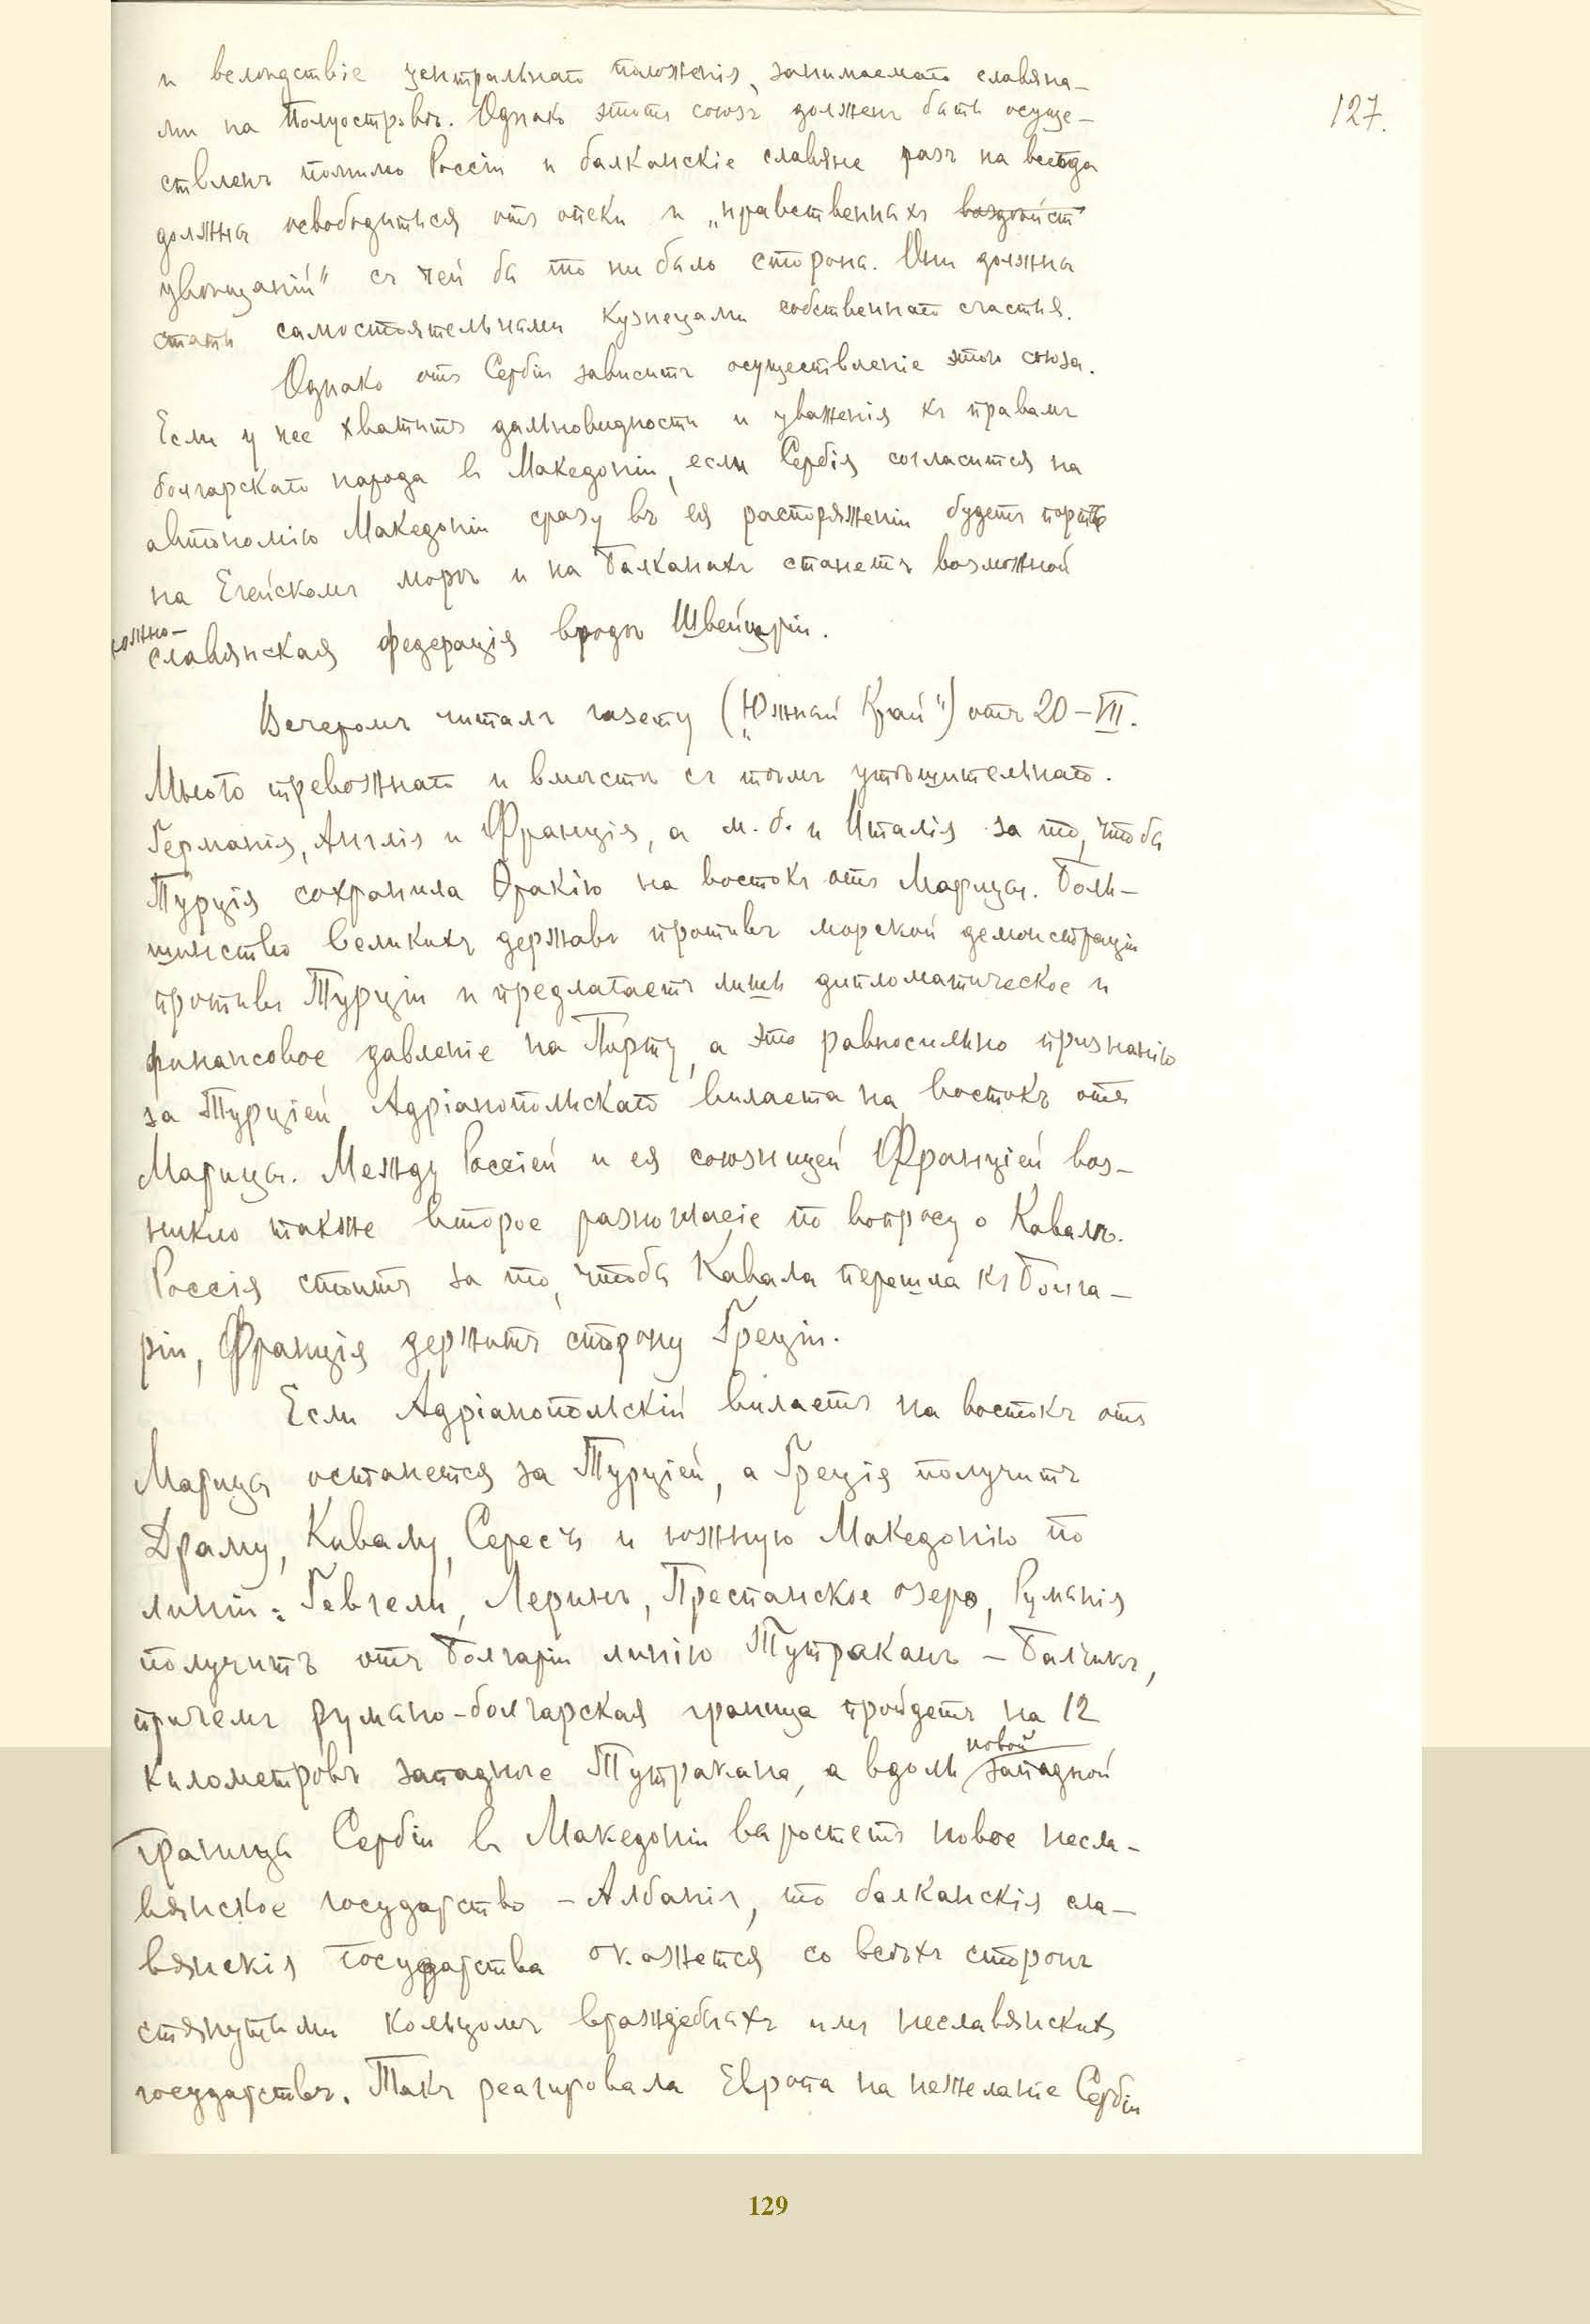 и вслѣдствіе центральнаго положенія, занимаемаго славяна-
ми на Полуостровѣ. Однако этотъ союзъ долженъ быть осуще-
127.
ствленъ помимо Россіи и балканскіе славяне разъ на всегда
должны освободиться отъ опеки и „нравственныхъ воздѣйст
увѣщаній" съ чьей бы то ни было стороны. Они должны
стать самостоятельными кузнецами собственнаго счастья.
Однако отъ Сербіи зависитъ осуществленіе этого союза.
Если у нее хватитъ дальновидности и уваженія къ правамъ
болгарскаго народа в Македоніи, если Сербія согласится на
автономію Македоніи сразу въ ея распоряженіи будетъ портъ
на Егейскомъ морѣ и на Балканахъ станетъ возможной
южно-
славянская федерація вродѣ Швейцаріи.
Вечеромъ читалъ газету („Южный Край") отъ 20-VII.
Много тревожнаго и вмѣстѣ съ тѣмъ утѣшительнаго.
Германія, Англія и Франція, а м. б. и Италія за то, чтобы
Турція сохранила Ѳракію на востокъ отъ Марицы. Боль-
шинство великихъ державъ противъ морской демонстраціи
противъ Турціи и предлагаетъ лишь дипломатическое и
финансовое давленіе на Порту, а это равносильно признанію
за Турціей Адріанопольскаго вилаета на востокъ отъ
Марицы. Между Россіей и ея союзницей Франціей воз-
никло также второе разногласіе по вопросу о Кавалѣ.
Россія стоитъ за то, чтобы Кавала перешла къ Болга-
ріи, Франція держитъ сторону Греціи.
Если Адріанопольскій вилаетъ на востокъ отъ
Марицы останется за Турціей, а Греція получитъ
Драму, Кавалу, Сересъ и южную Македонію по
линіи: Гевгели, Леринъ, Преспанское озеро, Румынія
получитъ отъ Болгаріи линію Тутраканъ - Балчикъ,
причемъ румыно-болгарская граница пройдетъ на 12
новой
километровъ западнѣе Тутракана, а вдоль западной
границы Сербіи въ Македоніи выростетъ новое несла-
вянское государство - Албанія, то балканскія сла-
вянскія государства окажется со всѣхъ сторонъ
стянутыми кольцомъ враждебныхъ или неславянскихъ
государствъ. Такъ реагировала Европа на нежеланіе Сербіи
129